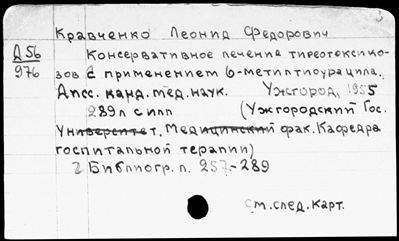 Кравченко Леонид Федорович
Д 56
976
Консервативное лечение тиреотоксико-
зов с применением 6-метилтиоурацила.
Дисс. канд. мед. наук. Ужгород, 1955
289 л с илл (Ужгородский Гос.
Университет, Медицинский фак. Кафедра
госпитальной терапии)
Библиогр. л. 257-289
См. след. карт.